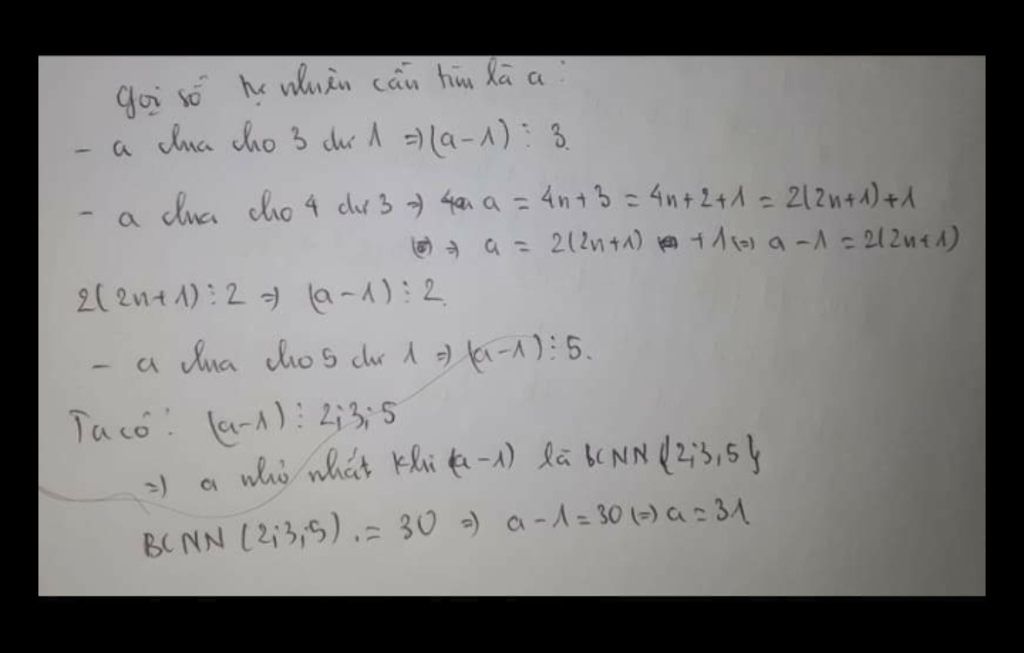 Gọi số tự nhiên cần tìm là a:
- a chia cho 3 dư 1 => (a-1) ⋮ 3.
- a chia cho 4 dư 3 => a = 4n+3 = 4n+2+1 = 2(2n+1)+1
=> a = 2(2n+1) +1 (=) a-1 = 2(2n+1)
2(2n+1) ⋮ 2 => (a-1) ⋮ 2.
- a chia cho 5 dư 1 => (a-1) ⋮ 5.
Ta có: (a-1) ⋮ 2;3;5
=> a nhỏ nhất khi (a-1) là BCNN {2;3,5}
BCNN (2;3;5) .= 30 => a-1=30 (=) a=31